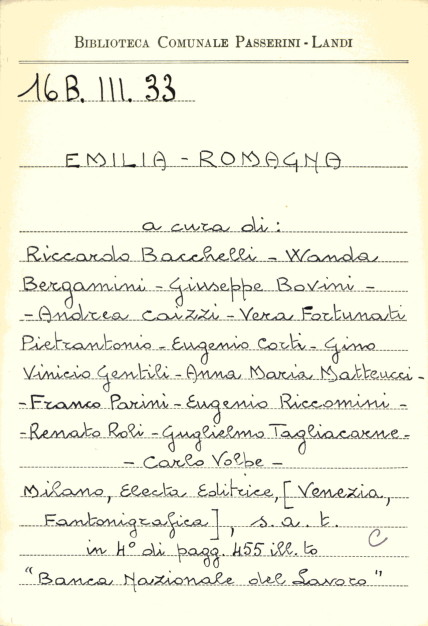 BIBLIOTECA COMUNALE PASSERINI-LANDI
16B. III. 33
EMILIA - ROMAGNA
a cura di:
Riccardo Bacchelli - Wanda
Bergamini - Giuseppe Bovini -
- Andrea Caizzi - Vera Fortunati
Pietrantonio - Eugenio Corti - Gino
Vinicio Gentili - Anna Maria Matteucci -
- Franco Parini - Eugenio Riccomini -
- Renato Roli - Guglielmo Tagliacarne -
- Carlo Volpe -
Milano, Electa Editrice, [Venezia,
Fantonigrafica], s. a. t.
in 4° di pagg. 455 ill. to
C
"Banca Nazionale del Lavoro"